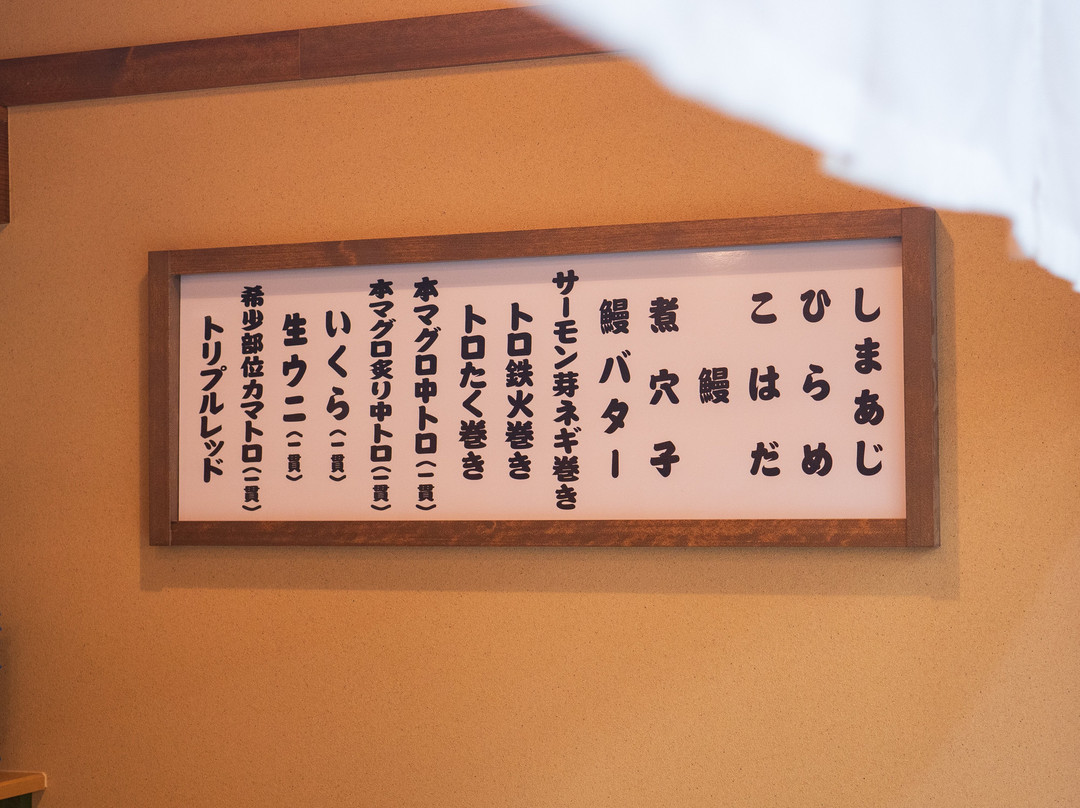 しまあじ
ひらめ
こはだ
鰻
煮穴子
鰻バター
サーモン芽ネギ巻き
トロ鉄火巻き
トロたく巻き
本マグロ中トロ(一貫)
本マグロ炙り中トロ(一貫)
いくら(一貫)
生ウニ(一貫)
希少部位カマトロ(一貫)
トリプルレッド